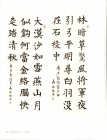 林暗草驚風將軍夜
引弓平明尋白羽沒
在石棱中
大漠沙如雪燕山月
似鉤何當金絡腦快
走踏清秋